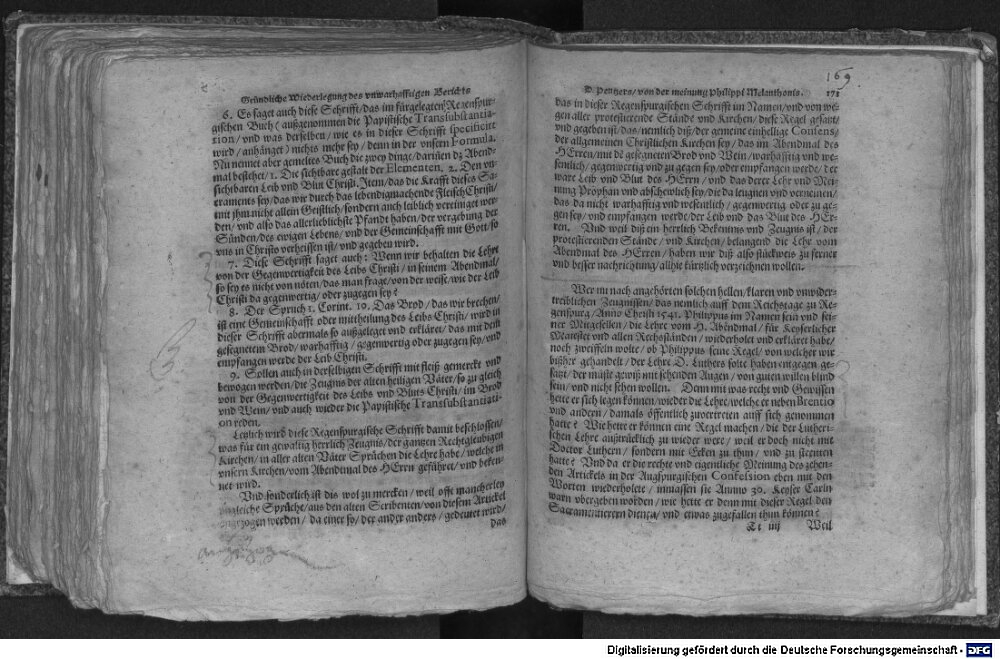 Gründliche Wiederlegung des vnwarhafftigen Berichts
6. Es saget auch diese Schrifft / das im fürgelegten Regenspur-
gischen Buch (außgenommen die Papistische Transsubstantia-
tion / vnd was derselben / wie es in dieser Schrifft specificirt
wird / anhänget) nichts mehr sey / denn in der vnsern Formula.
Nu nennet aber gemeltes Buch die zwey dinge / dariñen dz Abend-
mal bestehet / 1. Die sichtbare gestalt der Elementen. 2. Den vn-
sichtbaren Leib vnd Blut Christi. Item / das die Krafft dieses Sa-
craments sey / das wir durch das lebendigmachende Fleisch Christi /
mit jhm nicht allein Geistlich / sondern auch leiblich vereiniget wer-
den / vnd also das allerlieblichste Pfandt haben / der vergebung der
Sünden / des ewigen Lebens / vnd der Gemeinschafft mit Gott / so
vns in Christo verheissen ist / vnd gegeben wird.
7. Diese Schrifft saget auch: Wenn wir behalten die Lehre
von der Gegenwertigkeit des Leibs Christi / in seinem Abendmal /
so sey es nicht von nöten / das man frage / von der weise / wie der Leib
Christi da gegenwertig / oder zugegen sey?
8. Der Spruch 1. Corint. 10. Das Brod / das wir brechen /
ist eine Gemeinschafft oder mittheilung des Leibs Christi / wird in
dieser Schrifft abermals so außgeleget vnd erkläret / das mit dem
gesegnetem Brod / warhafftig / gegenwertig oder zugegen sey / vnd
empfangen werde der Leib Christi.
9. Sollen auch in derselbigen Schrifft mit fleiß gemerckt vnd
bewogen werden / die Zeugnis der alten heiligen Väter / so zu gleich
von der Gegenwertigkeit des Leibs vnd Bluts Christi / im Brod
vnd Wein / vnd auch wieder die Papistische Transsubstantiati-
on reden.
Letzlich wird diese Regenspurgische Schrifft damit beschlossen /
was für ein gewaltig herrlich Zeugnis / der gantzen Rechtgleubigen
Kirchen / in aller alten Väter Sprüchen die Lehre habe / welche in
vnsern Kirchen / vom Abendmal des HErrn geführet / vnd beken-
net wird.
Vnd sonderlich ist dis wol zu mercken / weil offt mancherley
vngleiche Sprüche / aus den alten Scribenten / von diesem Artickel
angezogen werden / da einer so / der ander anders / gedeutet wird /
das
169
D. Pezners / von der meinung Philippi Melanthonis. 171
das in dieser Regenspurgischen Schrifft im Namen / vnd von we-
gen aller protestierende Stände vnd Kirchen / diese Regel gesatzt /
vnd gegeben ist / das / nemlich diß / der gemeine einhellige Consens /
der allgemeinen Christlichen Kirchen sey / das im Abendmal des
HErren / mit dē gesegneten Brod vnd Wein / warhafftig vnd we-
sentlich / gegenwertig vnd zu gegen sey / oder empfangen werde / der
ware Leib vnd Blut des HErrn / vnd das derer Lehr vnd Mei-
nung Prophan vnd abschewlich sey / die da leugnen vnd verneinen /
das da nicht warhafftig vnd wesentlich / gegenwertig oder zu ge-
gen sey / vnd empfangen werde / der Leib vnd das Blut des HEr-
ren. Vnd weil diß ein herrlich Bekentnis vnd Zeugnis ist / der
protestierenden Stände / vnd Kirchen / belangend die Lehr vom
Abendmal des HErren / haben wir diß also stückweis zu ferner
vnd besser nachrichtung / allhie kürtzlich verzeichnen wollen.
Wer nu nach angehörten solchen hellen / klaren vnd vnwider-
treiblichen Zeugnissen / das nemlich auff dem Reichstage zu Re-
genspurg / Anno Christi 1541. Philippus im Namen sein vnd sei-
ner Mitgesellen / die Lehre vom H. Abendmal / für Keyserlicher
Maiestet vnd allen Reichsständen / wiederholet vnd erkläret habe /
noch zweiffeln wolte / ob Philippus seine Regel / von welcher wir
bißher gehandelt / der Lehre D. Luthers solte haben entgegen ge-
satzt / der müste gewiß mit sehenden Augen / von guten willen blind
sein / vnd nicht sehen wollen. Denn mit was recht vnd Gewissen
hette er sich legen können / wieder die Lehre / welche er neben Brentio
vnd andern / damals öffentlich zuvertreten auff sich genommen
hatte? Wie hette er können eine Regel machen / die der Lutheri-
schen Lehre außtrücklich zu wieder were / weil er doch nicht mit
Doctor Luthern / sondern mit Ecken zu thun / vnd zu streiten
hatte? Vnd da er die rechte vnd eigentliche Meinung des zehen-
den Artickels in der Augspurgischen Confession eben mit den
Worten wiederholete / inmassen sie Anno 30. Keyser Carln
warn vbergeben worden / wie hette er denn mit dieser Regel den
Sacramentirern dienen / vnd etwas zugefallen thun können?
Tt iiij Weil
Digitalisierung gefördert durch die Deutsche Forschungsgemeinschaft - DFG